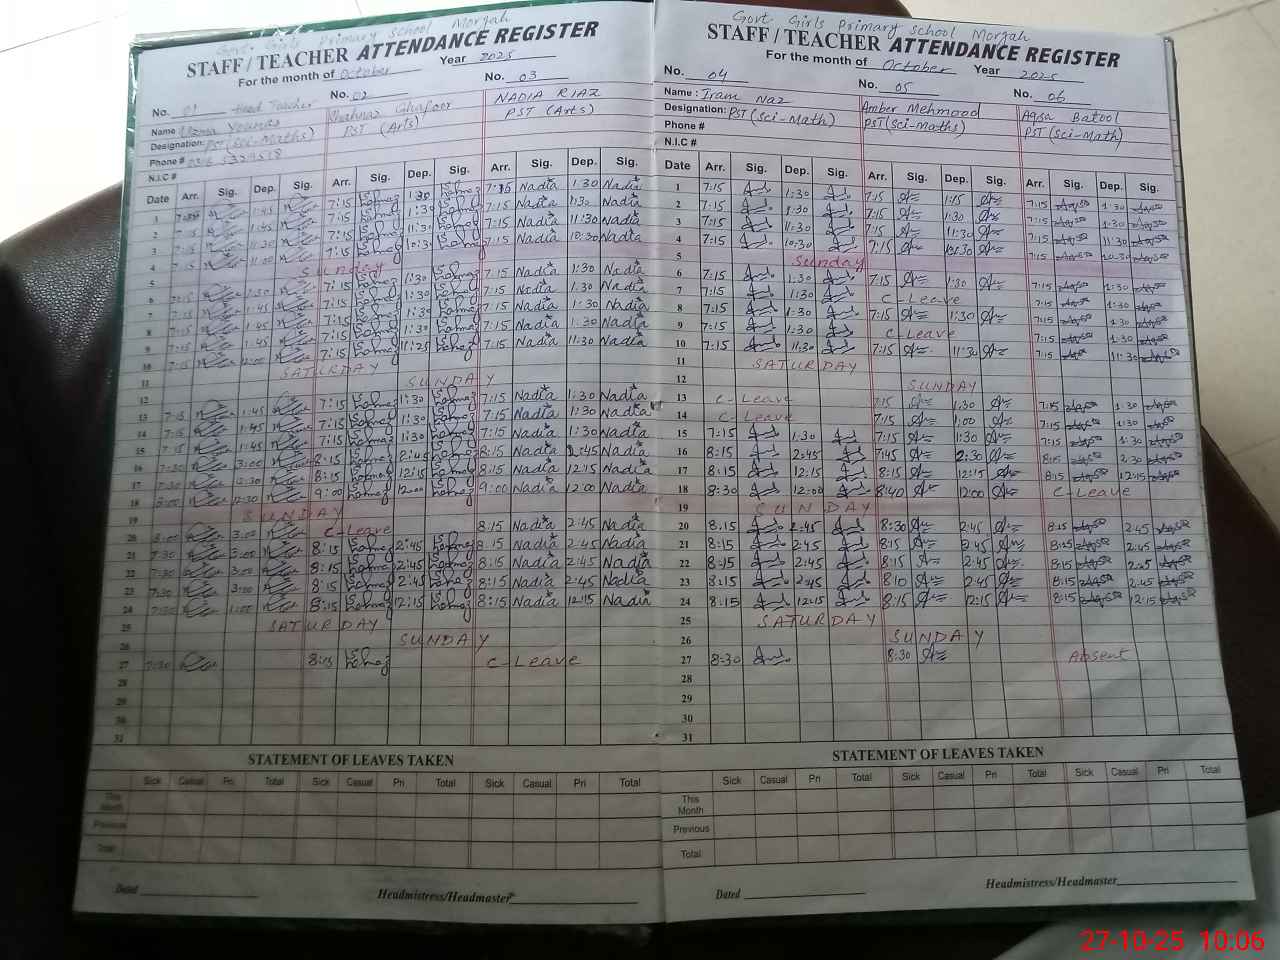 Govt. Girls Primary School Morjah
STAFF / TEACHER ATTENDANCE REGISTER
For the month of October Year 2025
No. 01 Head Teacher No. 02 No. 03
Name Uzma Younas Shahnaz Ghafoor NADIA RIAZ
Designation: PST (Sci-Maths) PST (Arts) PST (Arts)
Phone #
N.I.C #
Arr. Sig. Dep. Sig. Arr. Sig. Dep. Sig. Arr. Sig. Dep. Sig.
1 1:45 7:15 1:30 7:15 Nadia 1:30 Nadia
2 7:15 1:45 7:15 1:30 7:15 Nadia 1:30 Nadia
3 7:15 11:30 7:15 11:30 7:15 Nadia 11:30 Nadia
4 7:15 11:00 7:15 10:30 7:15 Nadia 10:30 Nadia
5 Sunday
6 7:15 1:30 7:15 1:30 7:15 Nadia 1:30 Nadia
7 7:15 1:45 7:15 1:30 7:15 Nadia 1:30 Nadia
8 7:15 1:45 7:15 1:30 7:15 Nadia 1:30 Nadia
9 7:15 1:45 7:15 1:30 7:15 Nadia 1:30 Nadia
10 7:15 12:00 7:15 11:25 7:15 Nadia 11:30 Nadia
11 SATURDAY
12 SUNDAY
13 7:15 1:45 7:15 1:30 7:15 Nadia 1:30 Nadia
14 7:15 1:45 7:15 1:30 7:15 Nadia 1:30 Nadia
15 7:15 1:45 7:15 1:30 7:15 Nadia 1:30 Nadia
16 7:30 3:00 8:15 2:45 8:15 Nadia 2:45 Nadia
17 7:30 12:30 8:15 12:15 8:15 Nadia 12:15 Nadia
18 8:00 12:30 9:00 12:00 9:00 Nadia 12:00 Nadia
19 SUNDAY
20 8:00 3:00 C-Leave 8:15 Nadia 2:45 Nadia
21 7:30 3:00 8:15 2:45 8:15 Nadia 2:45 Nadia
22 7:30 3:00 8:15 2:45 8:15 Nadia 2:45 Nadia
23 7:30 3:00 8:15 2:45 8:15 Nadia 2:45 Nadia
24 7:30 1:00 8:15 12:15 8:15 Nadia 12:15 Nadia
25 SATURDAY
26 SUNDAY
27 7:30 8:15 C-Leave
28
29
30
31
STATEMENT OF LEAVES TAKEN
Sick Casual Pri Total Sick Casual Pri Total Sick Casual Pri Total
This Month
Previous
Total
Dated Headmistress/Headmaster
Govt. Girls Primary School Morjah
STAFF / TEACHER ATTENDANCE REGISTER
For the month of October Year 2025
No. 04 No. 05 No. 06
Name : Iram Naz Amber Mehmood Aqsa Batool
Designation: PST (Sci-Math) PST (Sci-maths) PST (Sci-Math)
Phone #
N.I.C #
Date Arr. Sig. Dep. Sig. Arr. Sig. Dep. Sig. Arr. Sig. Dep. Sig.
1 7:15 1:30 7:15 1:15 7:15 1:30
2 7:15 1:30 7:15 1:30 7:15 1:30
3 7:15 11:30 7:15 11:30 7:15 11:30
4 7:15 10:30 7:15 10:30 7:15 10:30
5 Sunday
6 7:15 1:30 7:15 1:30 7:15 1:30
7 7:15 11:30 C-Leave 7:15 1:30
8 7:15 1:30 7:15 1:30 7:15 1:30
9 7:15 1:30 C Leave 7:15 1:30
10 7:15 11:30 7:15 11:30 7:15 11:30
11 SATURDAY
12 SUNDAY
13 C-Leave 7:15 1:30 7:15 1:30
14 C-Leave 7:15 1:00 7:15 1:30
15 7:15 1:30 7:15 1:30 7:15 1:30
16 8:15 2:45 7:45 2:30 8:15 2:30
17 8:15 12:15 8:15 12:15 8:15 12:15
18 8:30 12:00 8:40 12:00 C-Leave
19 SUNDAY
20 8:15 2:45 8:30 2:45 8:15 2:45
21 8:15 2:45 8:15 2:45 8:15 2:45
22 8:15 2:45 8:15 2:45 8:15 2:45
23 8:15 2:45 8:10 2:45 8:15 2:45
24 8:15 12:15 8:15 12:15 8:15 12:15
25 SATURDAY
26 SUNDAY
27 8:30 8:30 Absent
28
29
30
31
STATEMENT OF LEAVES TAKEN
Sick Casual Pri Total Sick Casual Pri Total Sick Casual Pri Total
This Month
Previous
Total
Dated Headmistress/Headmaster
27-10-25 10:06